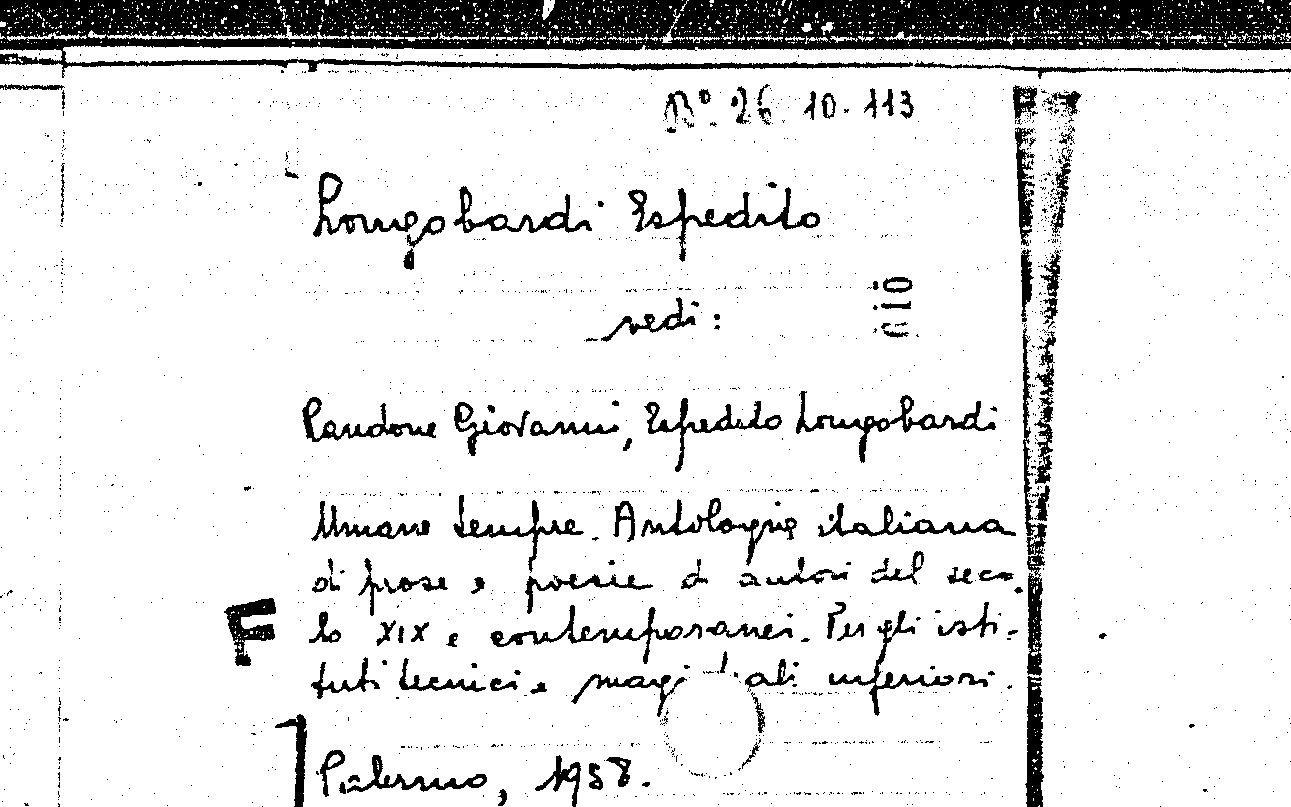 Bº 26 10.113
Longobardi Espedito
vedi:
Pandone Giovanni, Espedito Longobardi
Umane tempre. Antologia italiana
di prose e poesie di autori del seco-
lo XIX e contemporanei. Per gli isti-
tuti tecnici e magistrali inferiori.
F
Palermo, 1958.